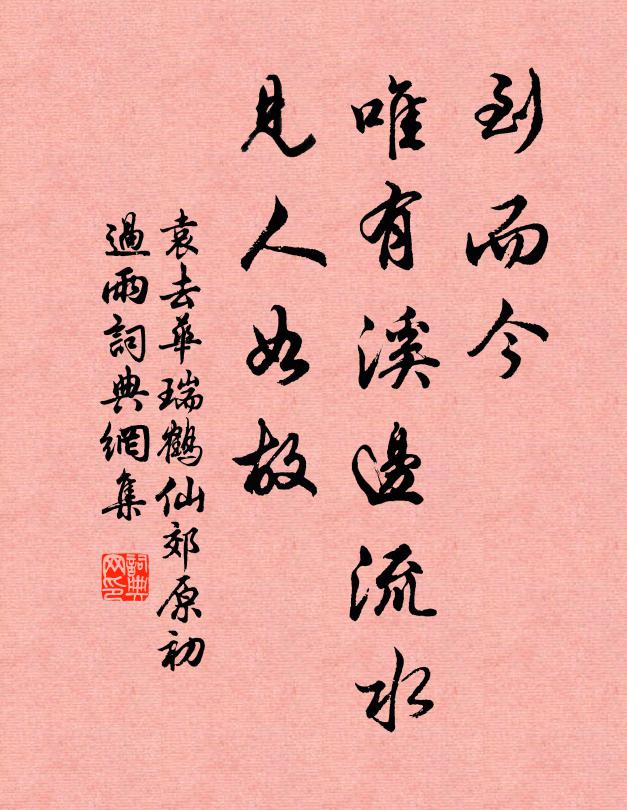 到而今
唯有溪邊流水
見人如故
袁去華瑞鶴仙郊原初
過雨詞典網集
詞典
网印